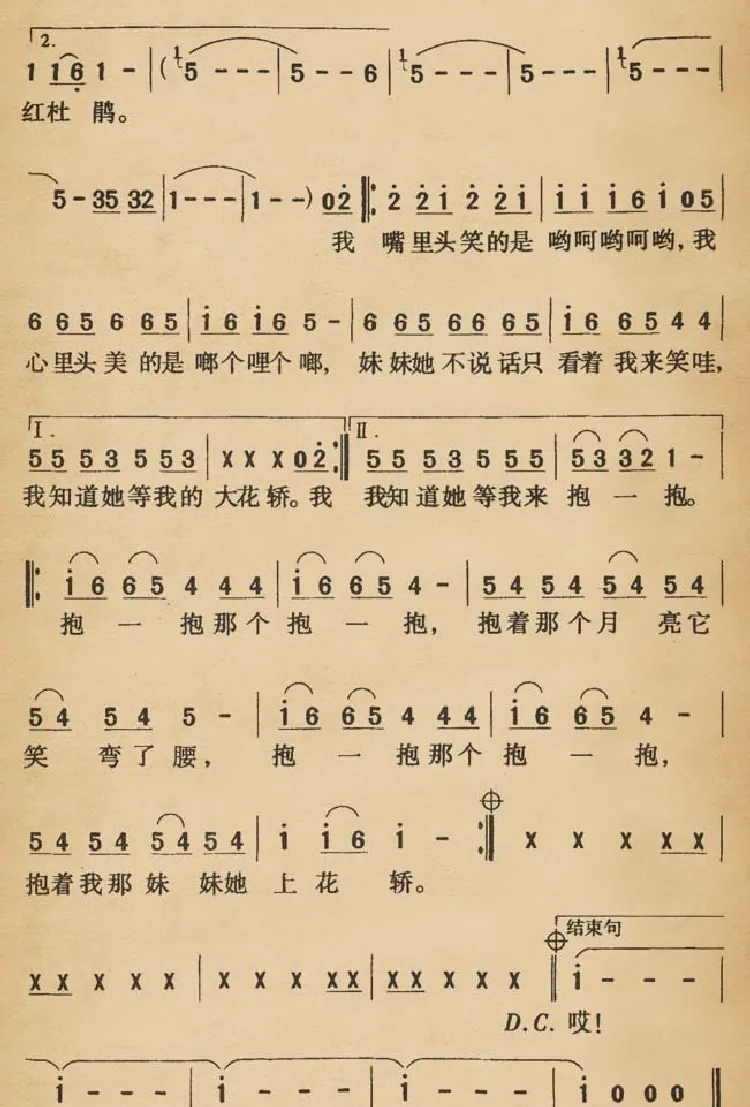 2.
1 1 6 1 - | ( 1 5 - - - | 5 - - 6 | 1 5 - - - | 5 - - - | 1 5 - - - |
红杜 鹃。
5 - 35 32 | 1 - - - | 1 - - ) 02 ‖: 2 21 2 21 | 1 1 1 6 1 05 |
我 嘴里头笑的是 哟呵哟呵哟, 我
6 65 6 65 | 16 16 5 - | 6 65 66 65 | 16 65 4 4 |
心里头 美 的是 啷个哩个 啷, 妹 妹她 不说 话只 看着 我来笑哇,
I. II.
55 53 5 53 | X X X 02 :‖ 55 53 5 55 | 53 32 1 - |
我知道她等我的 大花 轿。我 我知 道她 等我来 抱 一 抱。
‖: 16 65 4 44 | 16 65 4 - | 54 54 54 54 |
抱 一 抱那个 抱 一 抱, 抱着那个月 亮它
54 54 5 - | 16 65 4 44 | 16 65 4 - |
笑 弯了 腰, 抱 一 抱那个 抱 一 抱,
54 54 54 54 | 1 16 1 - :‖ X X X XX |
抱着我那 妹 妹她 上 花 轿。
结束句
XX X X X | X X X XX | XX X X X ‖ 1 - - - |
D.C. 哎!
1 - - - | 1 - - - | 1 - - - | 1 0 0 0 ‖